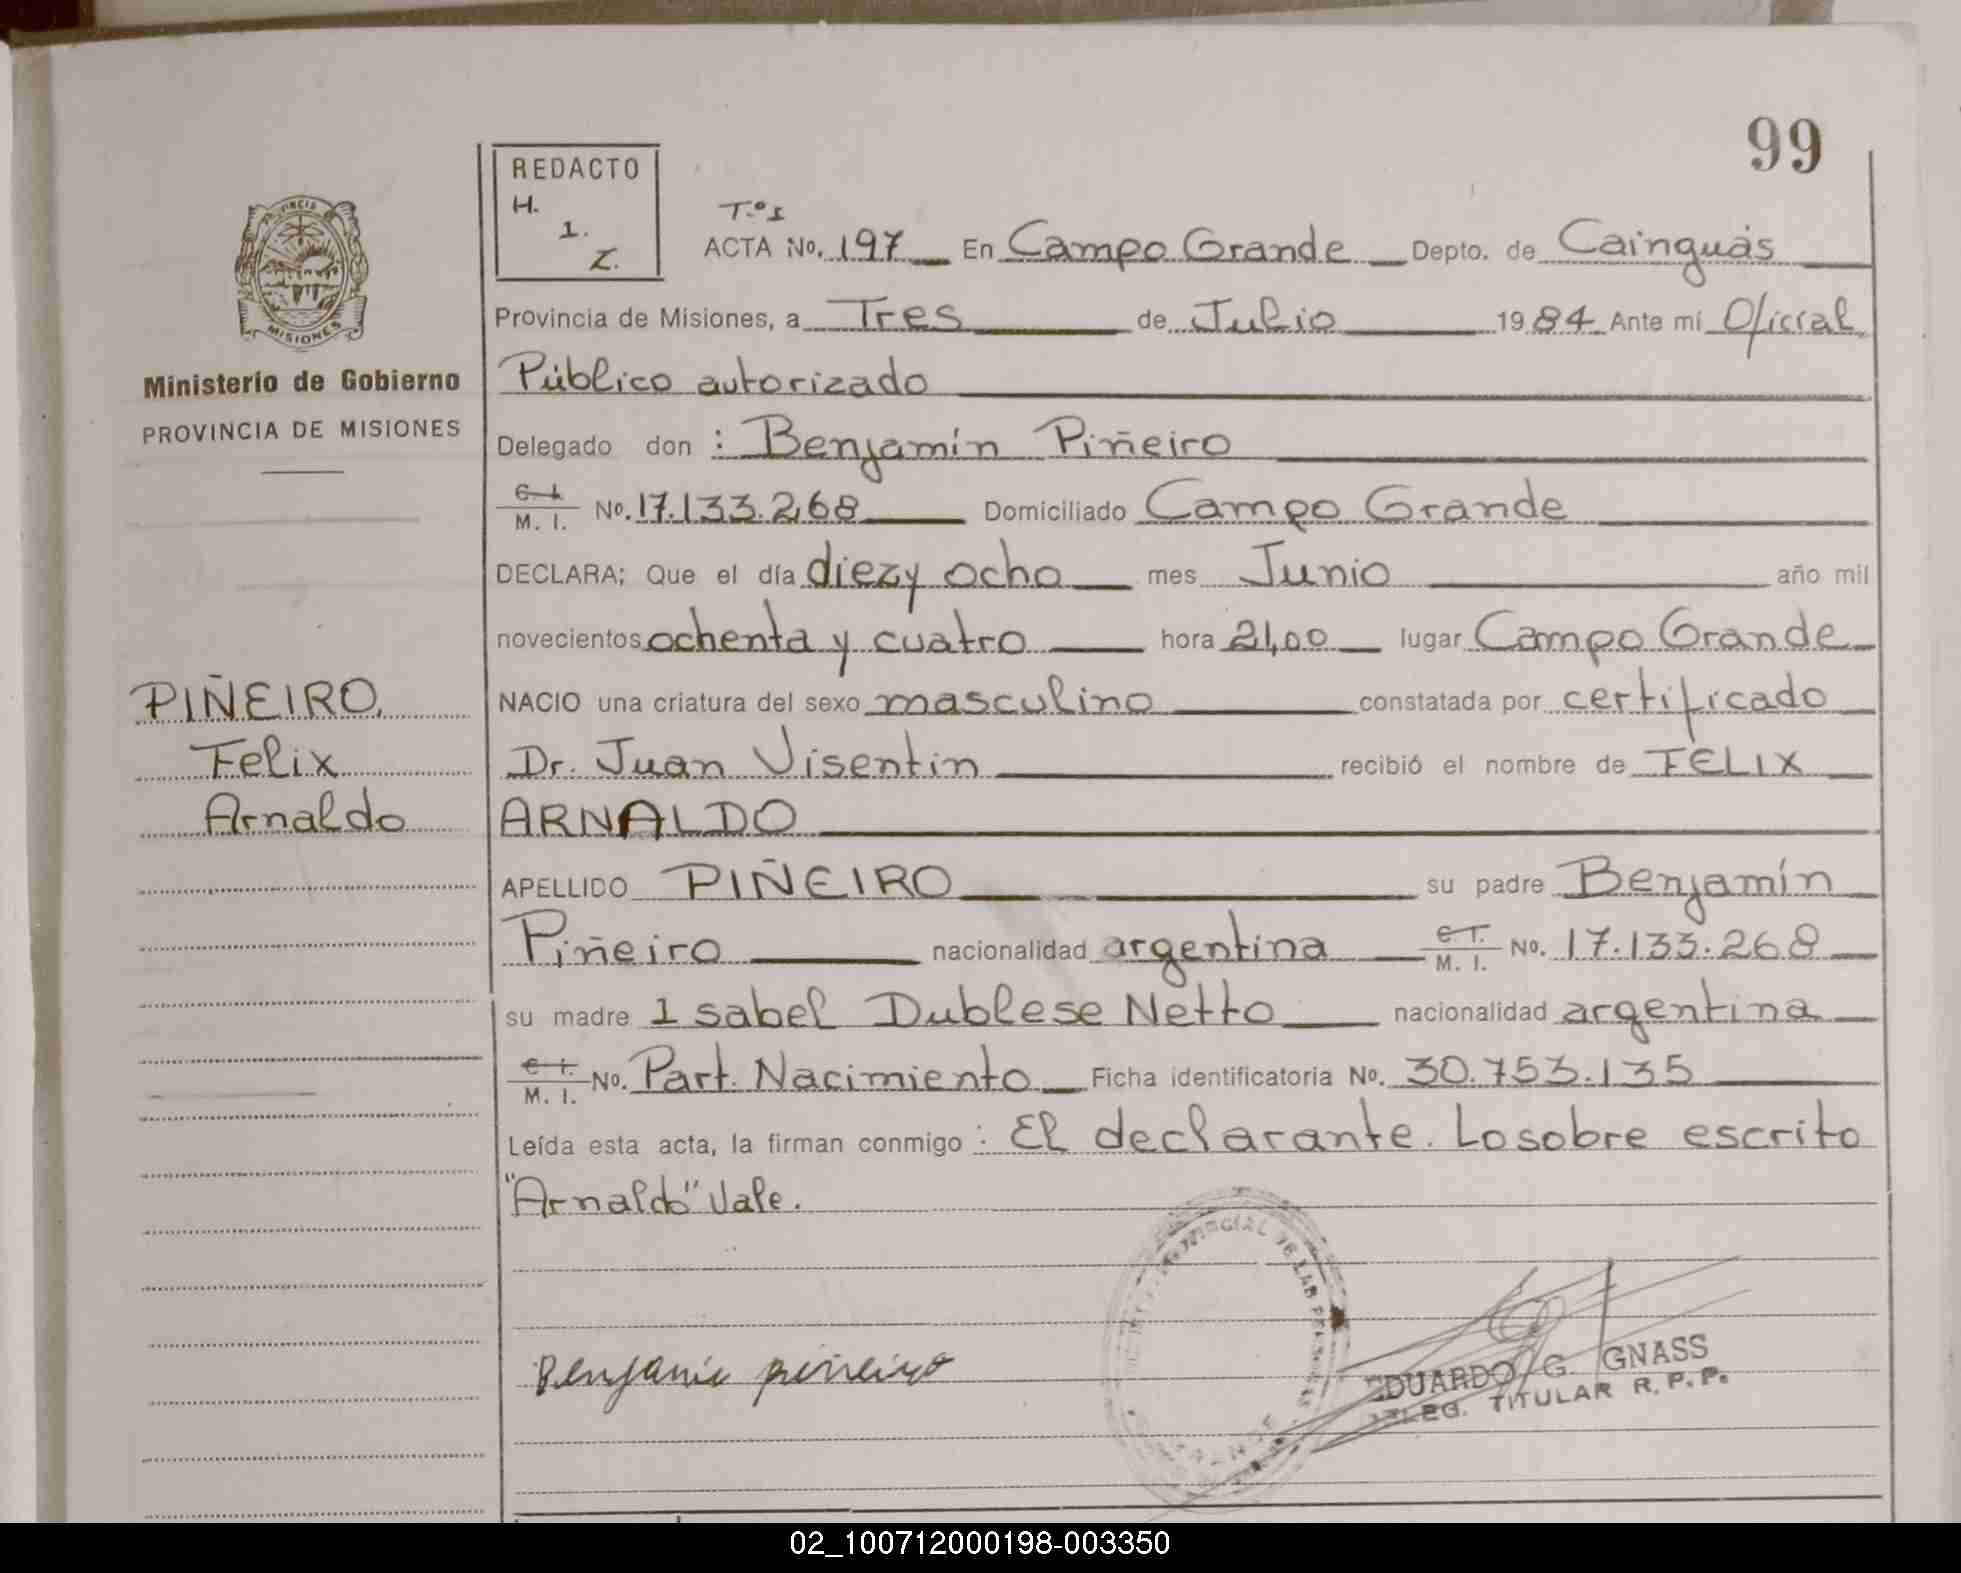 99
REDACTO
H.
1.
Z.
T.º I
ACTA No. 197 En Campo Grande Depto. de Cainguás
Provincia de Misiones, a Tres de Julio 1984 Ante mí Oficial
Público autorizado
Delegado don : Benjamín Piñeiro
C. I. M. I. No. 17.133.268 Domiciliado Campo Grande
DECLARA; Que el día diez y ocho mes Junio año mil
novecientos ochenta y cuatro hora 21,00 lugar Campo Grande
NACIO una criatura del sexo masculino constatada por certificado
Dr. Juan Visentin recibió el nombre de FELIX
ARNALDO
APELLIDO PIÑEIRO su padre Benjamín
Piñeiro nacionalidad argentina C. I. M. I. No. 17.133.268
su madre Isabel Dublese Netto nacionalidad argentina
C. I. M. I. No. Part. Nacimiento Ficha identificatoria No. 30.753.135
Leída esta acta, la firman conmigo : El declarante. Lo sobre escrito
"Arnaldo" Vale.
PROVINCIA
MISIONES
Ministerio de Gobierno
PROVINCIA DE MISIONES
PIÑEIRO,
Felix
Arnaldo
Benjamin piñeiro
PROVINCIAL DE LAS PERSONAS
EDUARDO G. GNASS
DELEG. TITULAR R. P. P.
02_100712000198-003350